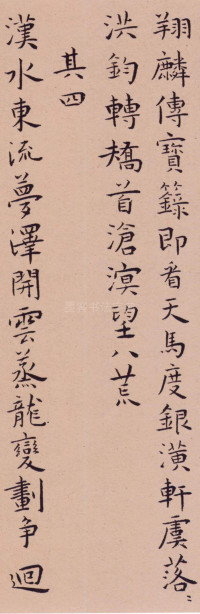 翔麟傳寶籙即看天馬度銀潢軒虞落〻
洪鈞轉矯首滄溟望八荒
其四
漢水東流夢澤開雲蒸龍變劃争迴